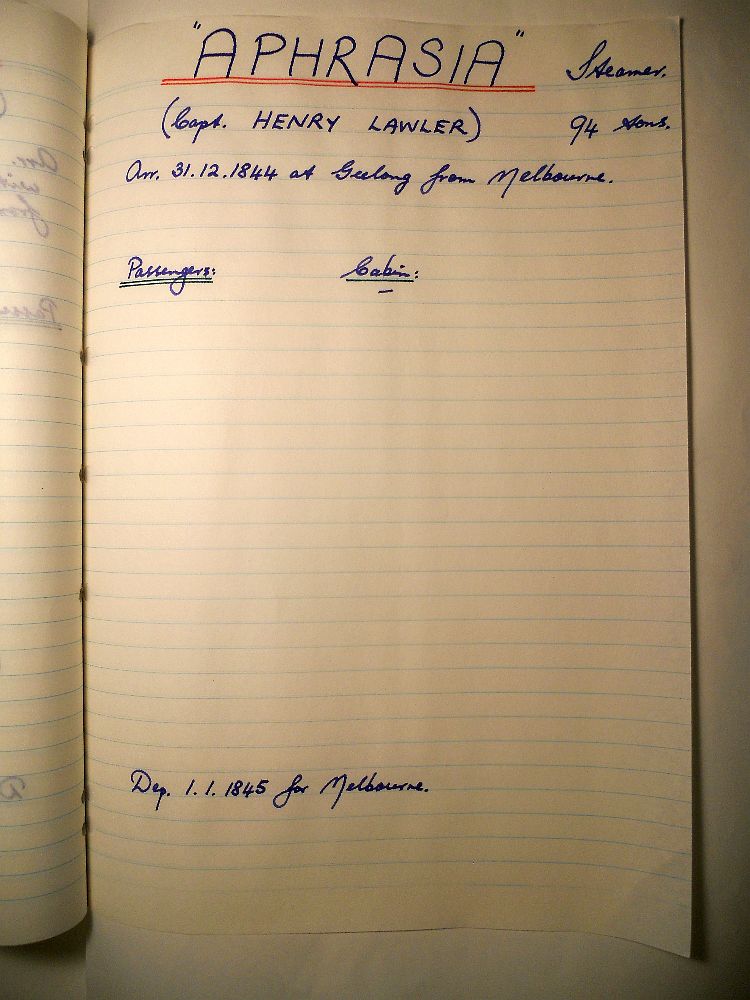 "APHRASIA" Steamer.
(Capt. HENRY LAWLER) 94 tons.
Arr. 31.12.1844 at Geelong from Melbourne.
Passengers: Cabin:
–
Dep. 1.1.1845 for Melbourne.